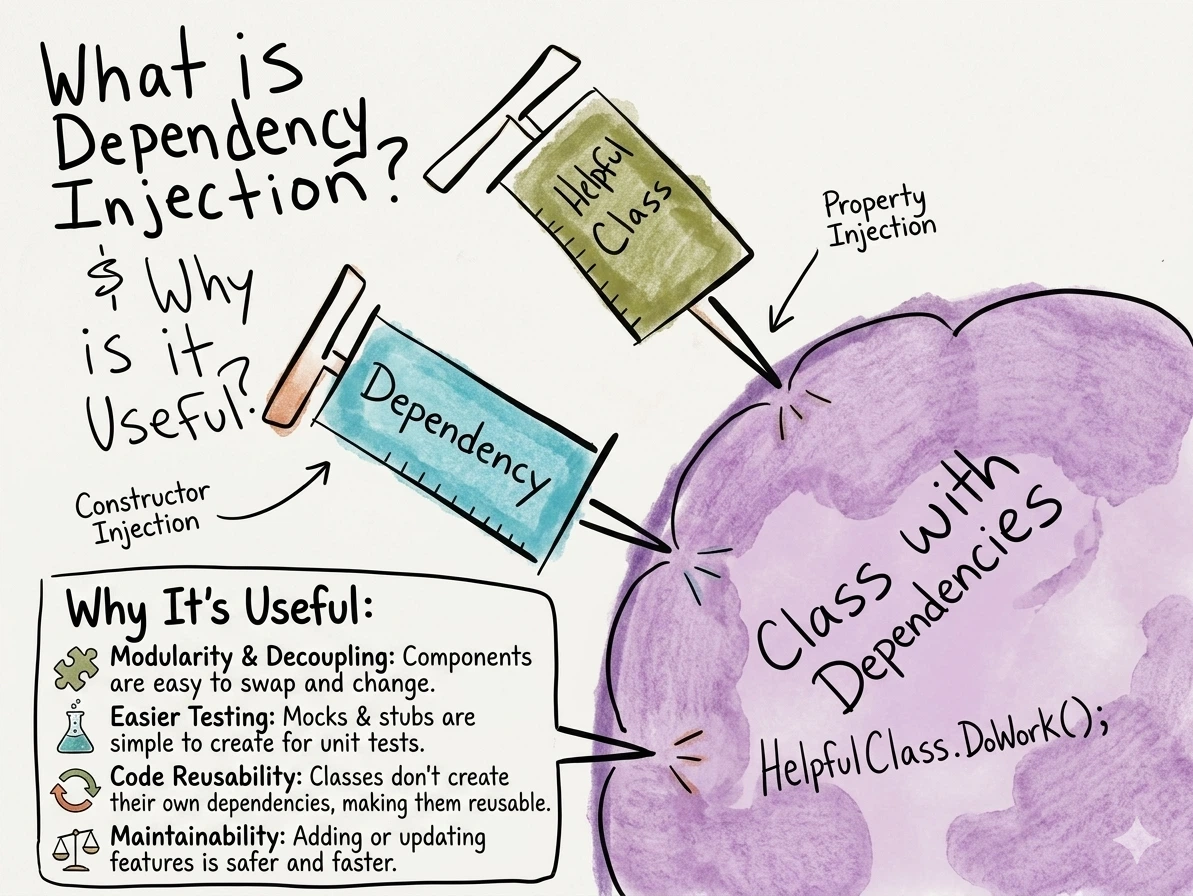 What is
Dependency
Injection?
& Why
is it
Useful?
Helpful
Class
Property
Injection
Dependency
Constructor
Injection
Class with
Dependencies
HelpfulClass.DoWork();
Why It's Useful:
Modularity & Decoupling: Components
are easy to swap and change.
Easier Testing: Mocks & stubs are
simple to create for unit tests.
Code Reusability: Classes don't create
their own dependencies, making them reusable.
Maintainability: Adding or updating
features is safer and faster.